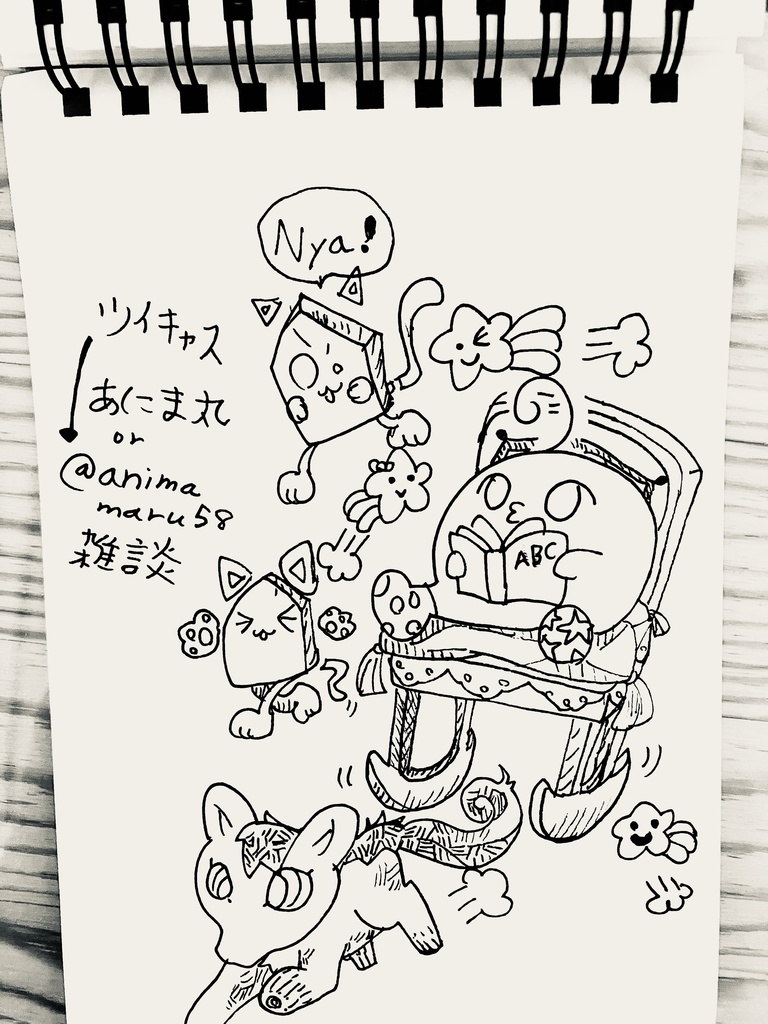 Nya!
ツイキャス
あにま丸
or
@anima
maru58
雑談
ABC